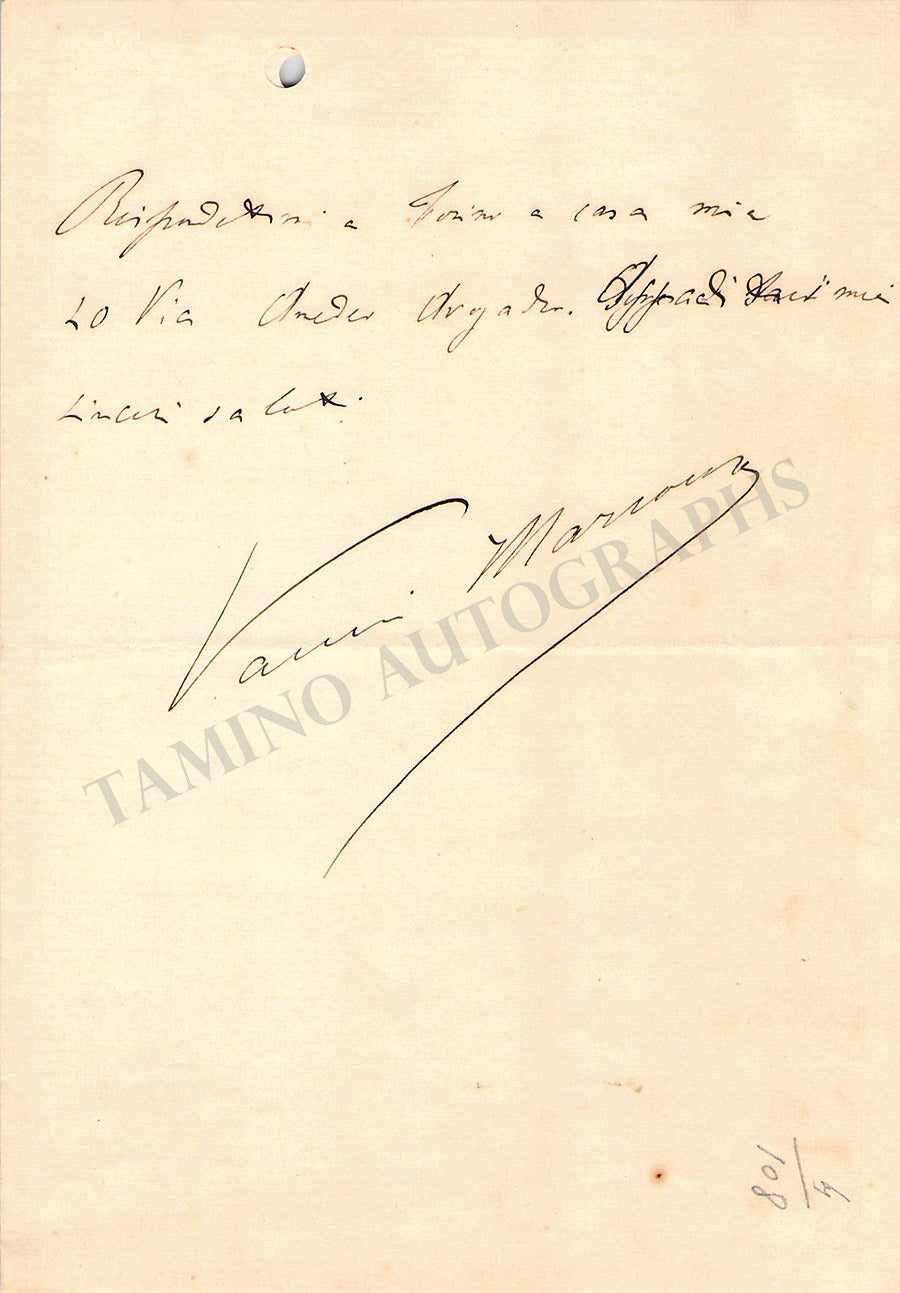 Rispondetemi a Torino a casa mia
20 Via Amedeo Avogadro. miei
sinceri saluti.
Vanni Marcoux
TAMINO AUTOGRAPHS
108/4